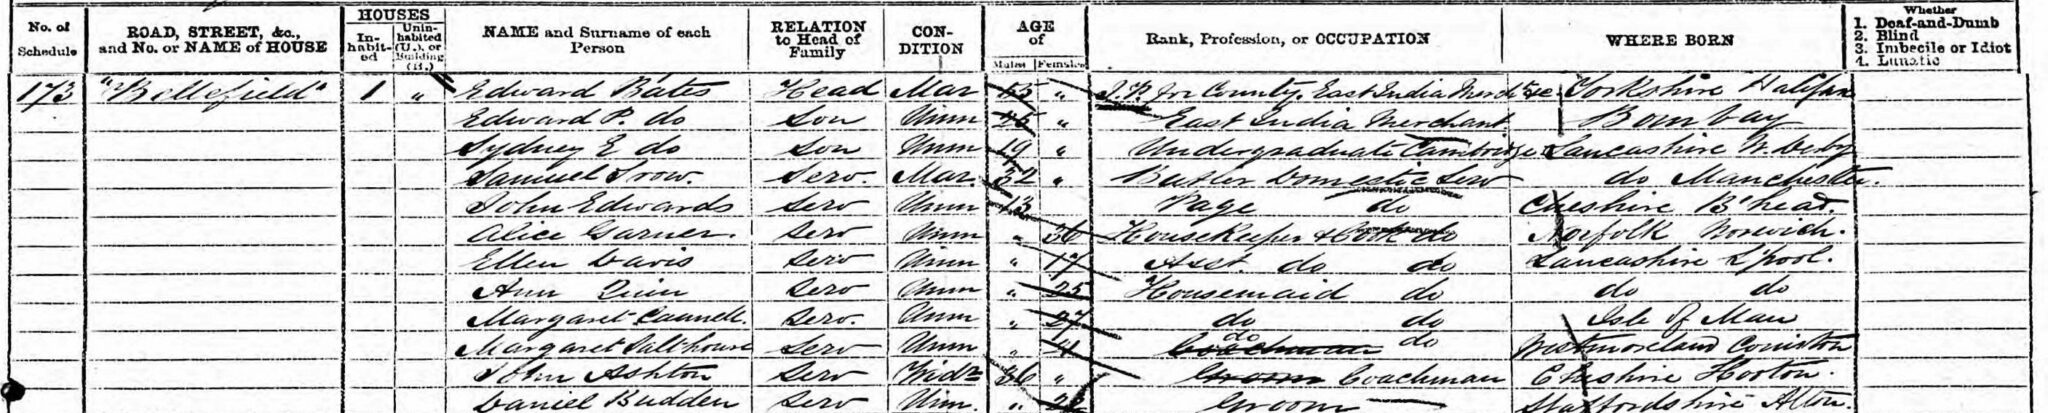 No. of Schedule ROAD, STREET, &c., and No. or NAME of HOUSE HOUSES In-habit-ed Unin-habited (U.), or Building (B.) NAME and Surname of each Person RELATION to Head of Family CON-DITION AGE of Males Females Rank, Profession, or OCCUPATION WHERE BORN Whether 1. Deaf-and-Dumb 2. Blind 3. Imbecile or Idiot 4. Lunatic
173 "Bellefield" 1 " Edward Bates Head Mar 55 " J.P. for County. East India Mercht &c Yorkshire Halifax
Edward P. do Son Unm 25 " East India Merchant Bombay
Sydney E do Son Unm 19 " Undergraduate Cambridge Lancashire W. Derby
Samuel Trow. Serv. Mar. 32 " Butler Domestic Serv do Manchester.
John Edwards Serv Unm 13 " Page do Cheshire B'head.
Alice Garner. Serv Unm " 36 Housekeeper & Cook do Norfolk Norwich.
Ellen Davis Serv Unm " 17 Asst. do do Lancashire L'pool.
Ann Quin Serv Unm " 25 Housemaid do do do
Margaret Cannell. Serv. Unm " 27 do do Isle of Man
Margaret Salthouse Serv Unm " do do Westmoreland Coniston
John Ashton Serv Widr 36 " Groom Coachman Cheshire Hooton.
Daniel Budden Serv Unm. " Groom Staffordshire Alton.